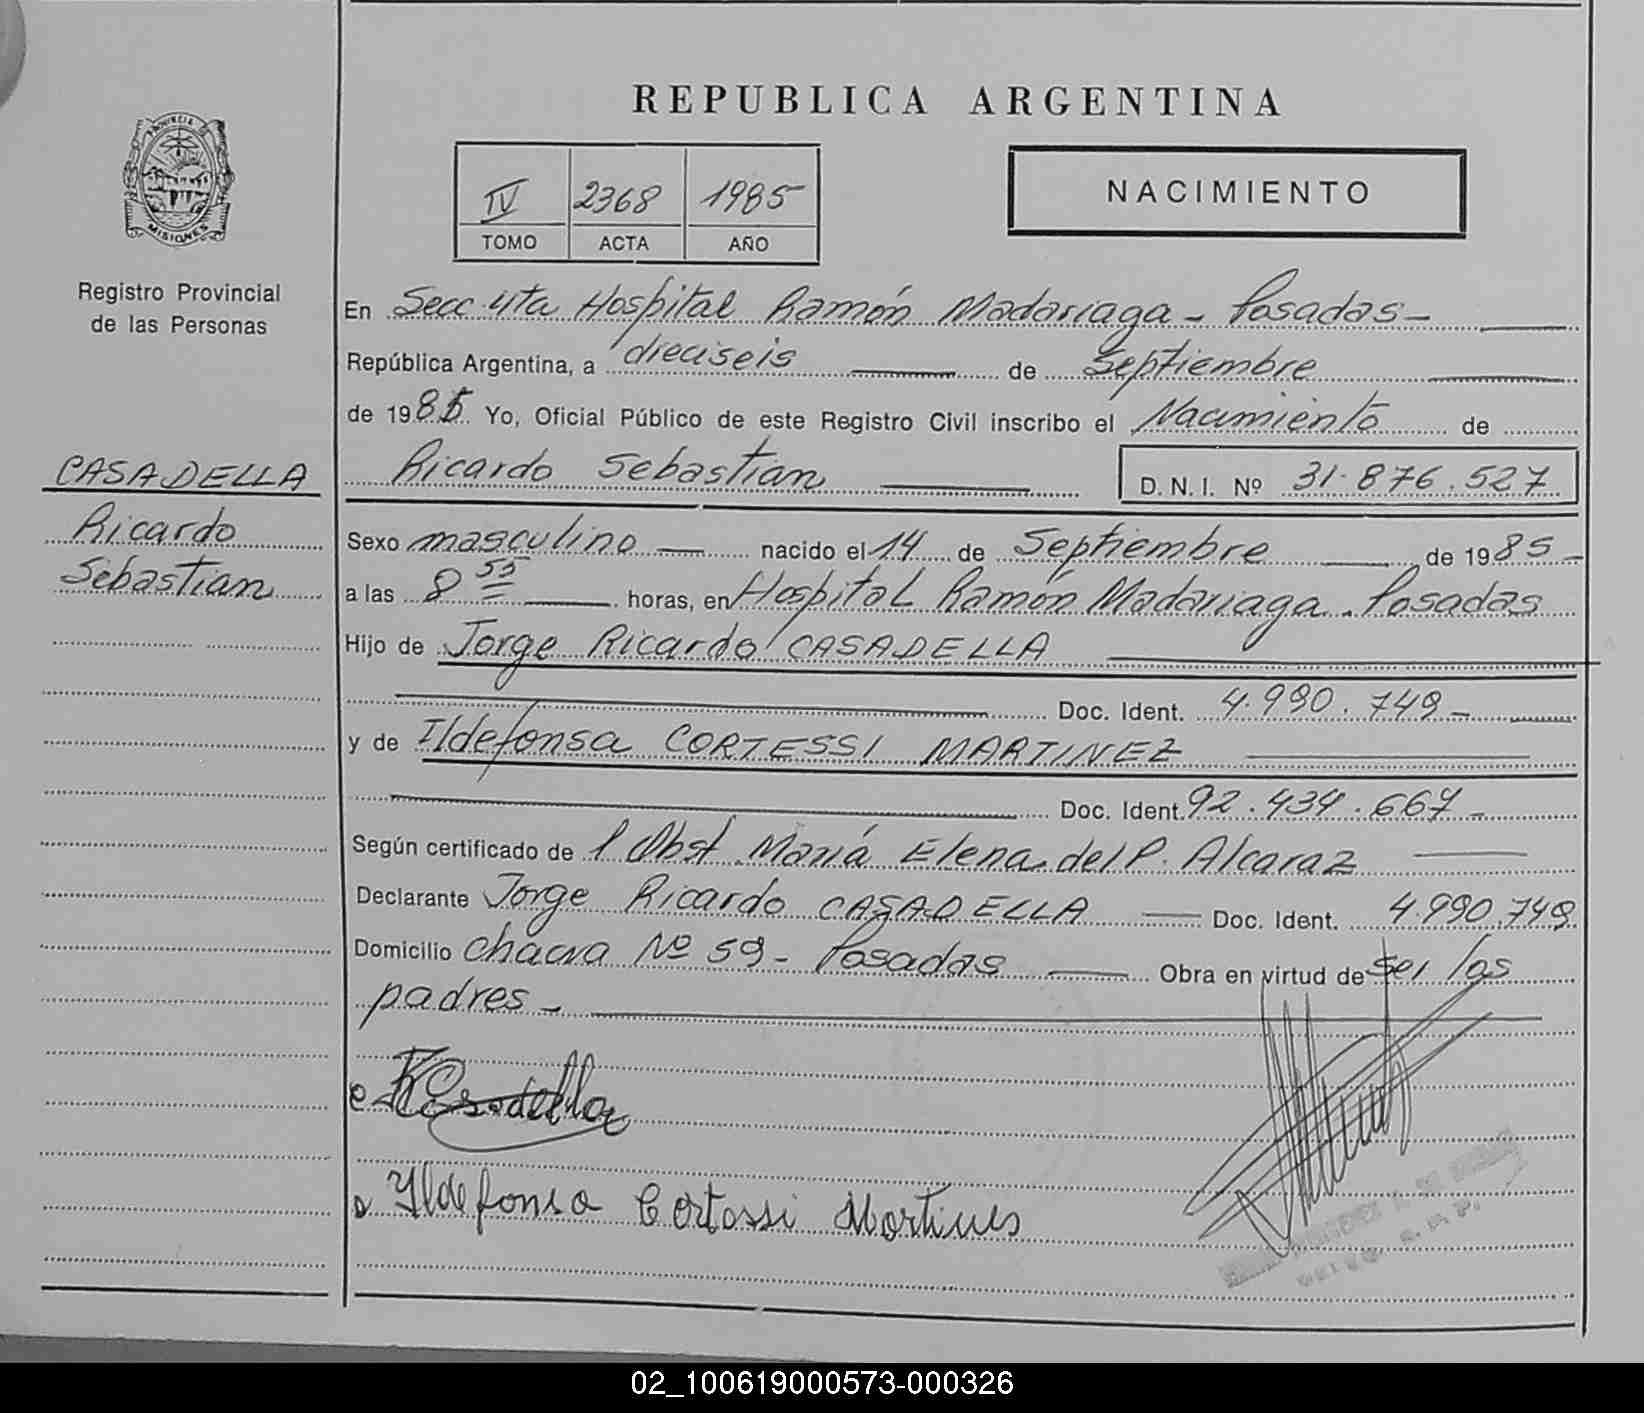 REPUBLICA ARGENTINA
PROVINCIA DE
MISIONES
Registro Provincial
de las Personas
IV 2368 1985
TOMO ACTA AÑO
NACIMIENTO
CASADELLA
Ricardo
Sebastian
En Secc 4ta Hospital Ramón Madariaga - Posadas -
República Argentina, a dieciseis de Septiembre
de 1985 Yo, Oficial Público de este Registro Civil inscribo el Nacimiento de
Ricardo Sebastian D.N.I. Nº 31.876.527
Sexo masculino nacido el 14 de Septiembre de 1985 -
a las 8 55 horas, en Hospital Ramón Madariaga. Posadas
Hijo de Jorge Ricardo CASADELLA
Doc. Ident. 4.990.749 -
y de Ildefonsa CORTESSI MARTINEZ
Doc. Ident. 92.434.667 -
Según certificado de Obst. María Elena del P. Alcaraz
Declarante Jorge Ricardo CASADELLA Doc. Ident. 4.990.749
Domicilio chacra Nº 59 - Posadas Obra en virtud de ser los
padres -
Casadella
Ildefonsa Cortessi Martines
02_100619000573-000326